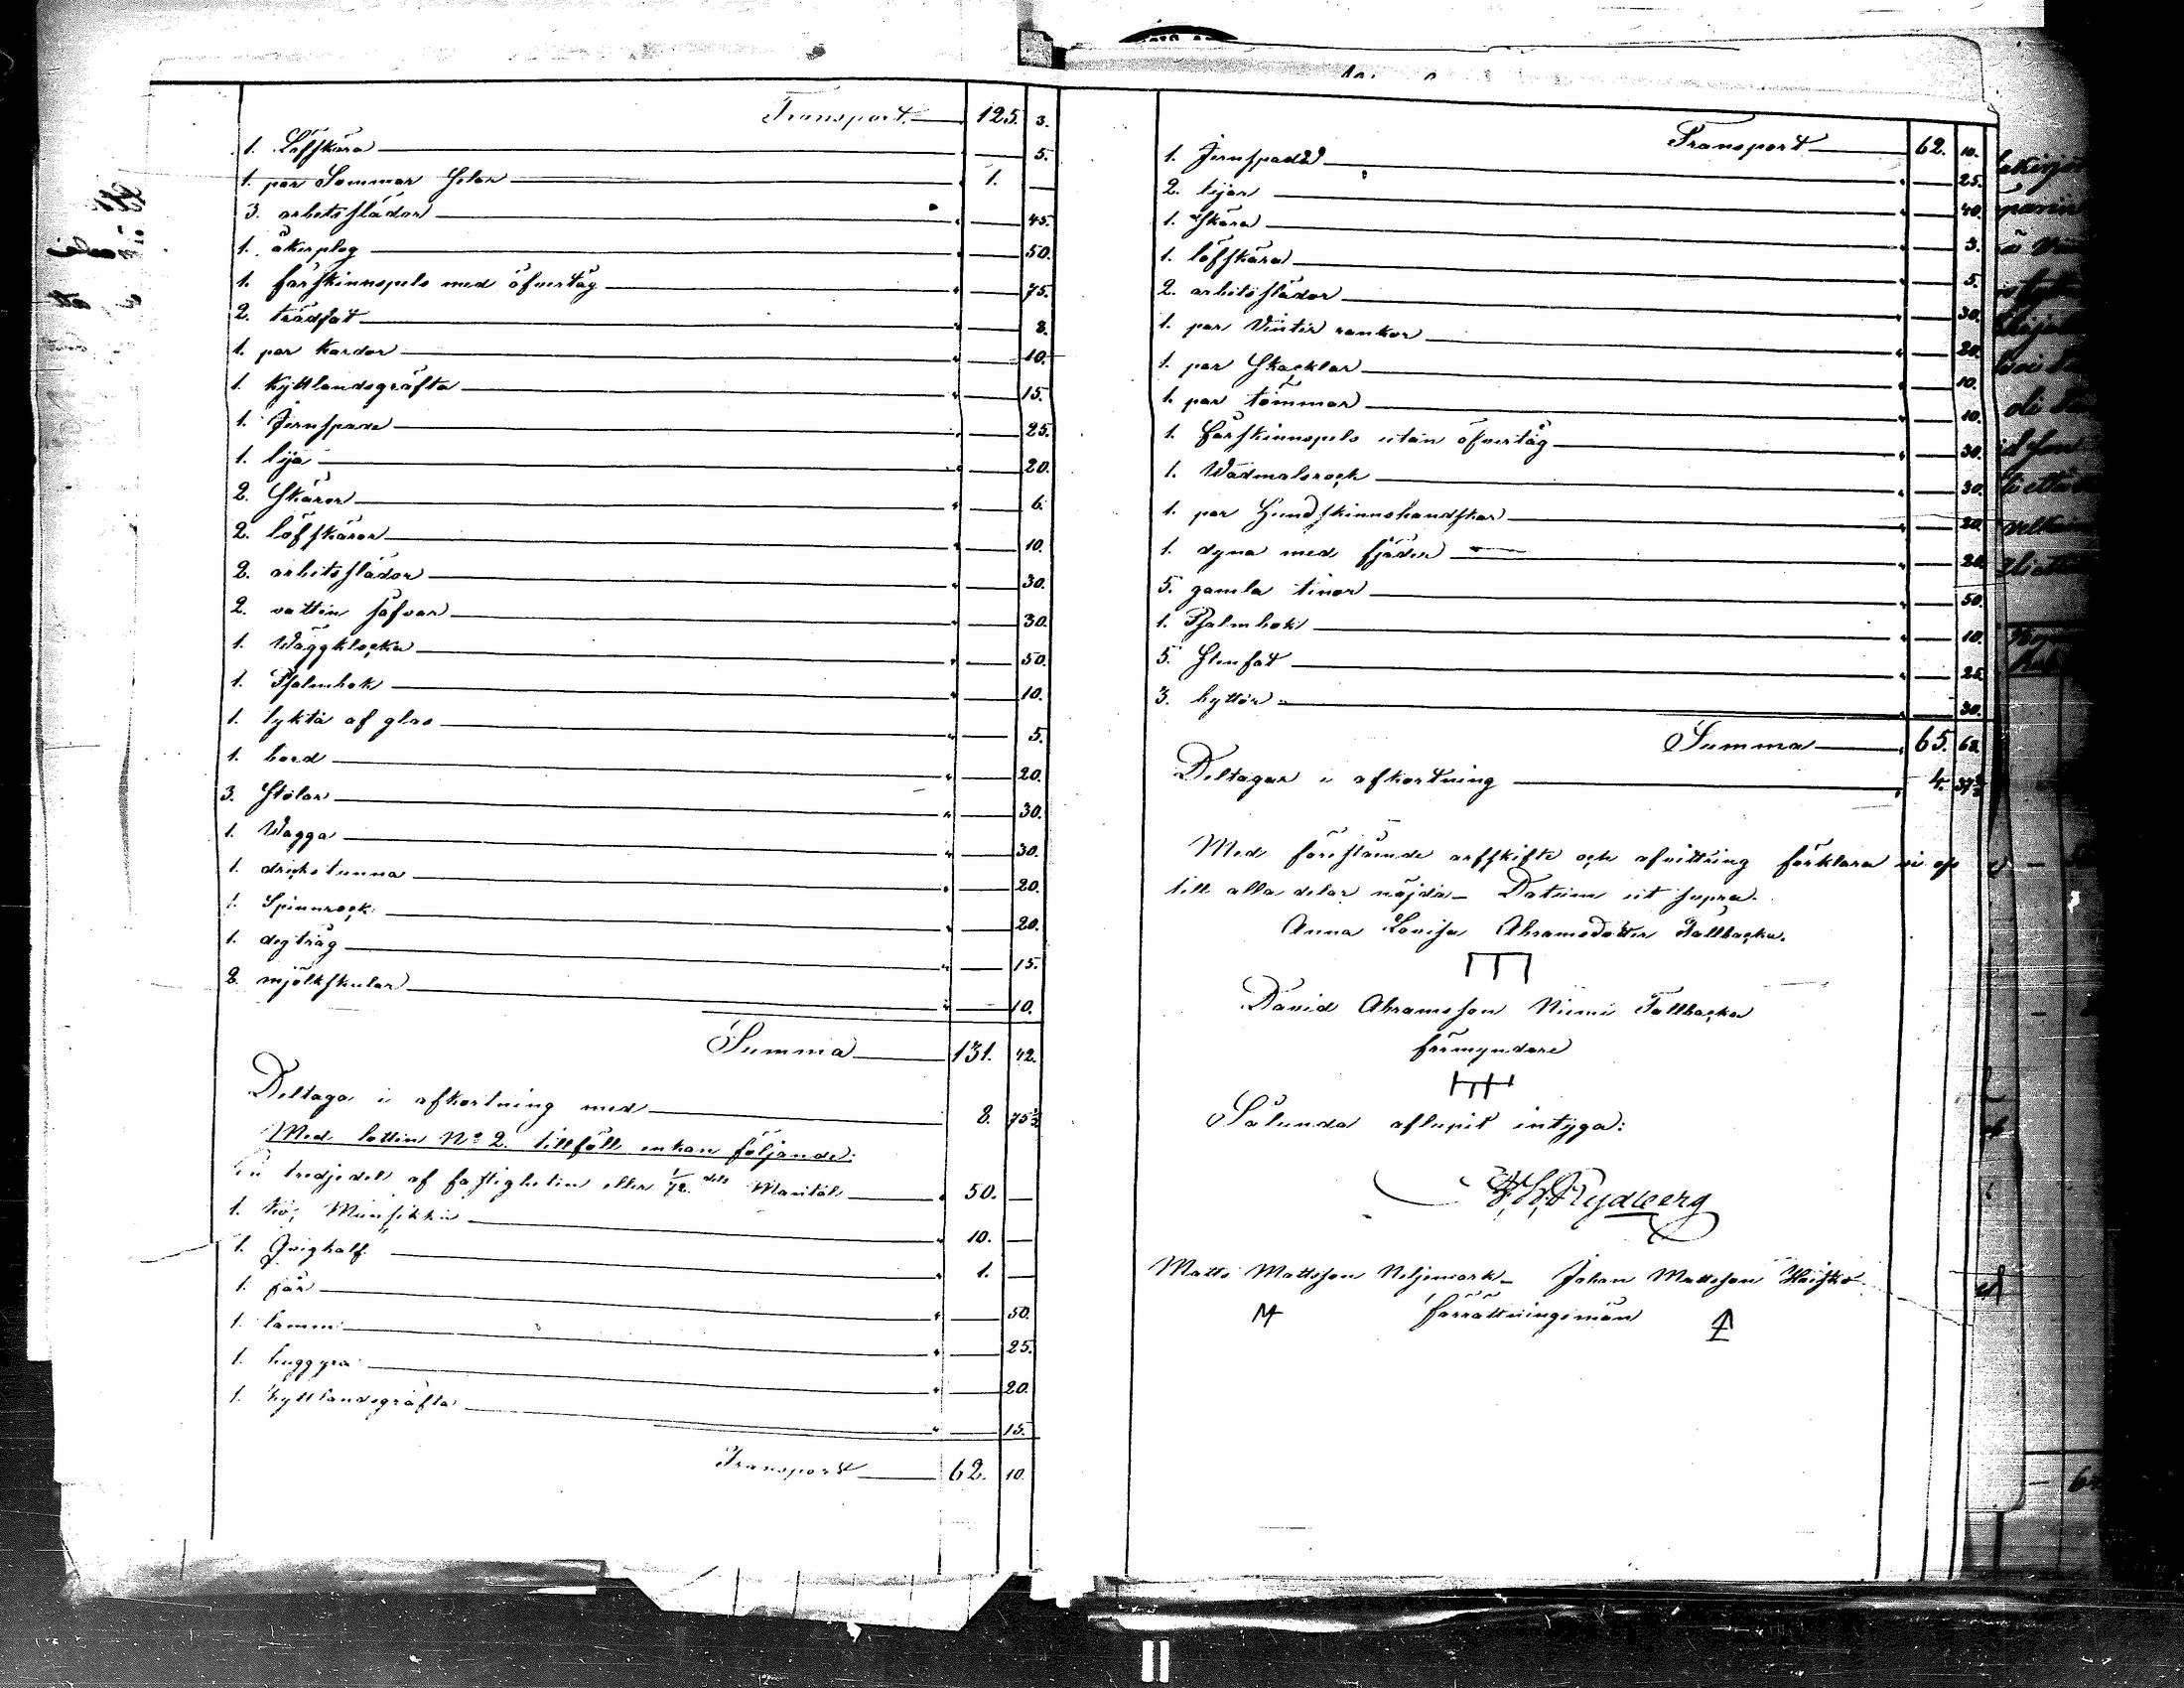 Transport 125. 3.
1. Löfskära 5.
1. par Sommar Helar 1. —
3. arbetsslädar " 45.
1. åkerplog " 50.
1. fårskinnspels med öfvertåg " 75.
2. trädfat " 8.
1. par kardor " 10.
1. kyttlandsgräfta " 15.
1. Jernspade " 25.
1. lija " 20.
2. Skäror " 6.
2. löfskäror " 10.
2. arbetsslädor " 30.
2. vatten såfvar " 30.
1. Wäggklocka " 50.
1. Psalmbok " 10.
1. lykta af glas " 5.
1. bord " 20.
3. Stolar " 30.
1. Wagga " 30.
1. drickstunna " 20.
1. Spinnrock " 20.
1. degtråg " 15.
2. mjölkskular " 10.
Summa 131. 42.
Deltaga i afkortning med 8. 75 1/3
Med lotten No 2. tillföll enkan följande:
En tredjedel af fastigheten eller 1/72 dels Mantal " 50. —
1. ko, Mansikki " 10. —
1. Qvighalf " 1. —
1. får " 50.
1. lamm " 25.
1. huggyxa " 20.
1. kyttlandsgräfta " 15.
Transport 62. 10.
Transport 62. 10.
1. Jernspade " 25.
2. lijar " 40.
1. Skära " 3.
1. löfskära " 5.
2. arbetsslädor " 30.
1. par Vinter rankor " 20.
1. par Skacklar " 10.
1. par tömmar " 10.
1. fårskinnspels utan öfvertåg " 30.
1. Wadmalsrock " 30.
1. par Hundskinnshandskar " 20.
1. dyna med fjäder " 20.
5. gamla tinor " 50.
1. Psalmbok " 10.
5. Stenfat " 25.
3. byttor " 30.
Summa 65. 68.
Deltagar i afkortning " 4. 37 2/3
Med föreståënde arfskifte och afvittring förklara vi oss
till alla delar nöjda – Datum ut supra.
Anna Lovisa Abramsdotter Tallbacka.
David Abramsson Niemi Tallbacka
förmyndare
Sålunda aflupit intyga:
Rydberg
Matts Mattsson Veljemark – Johan Mattsson
förrättningsmän